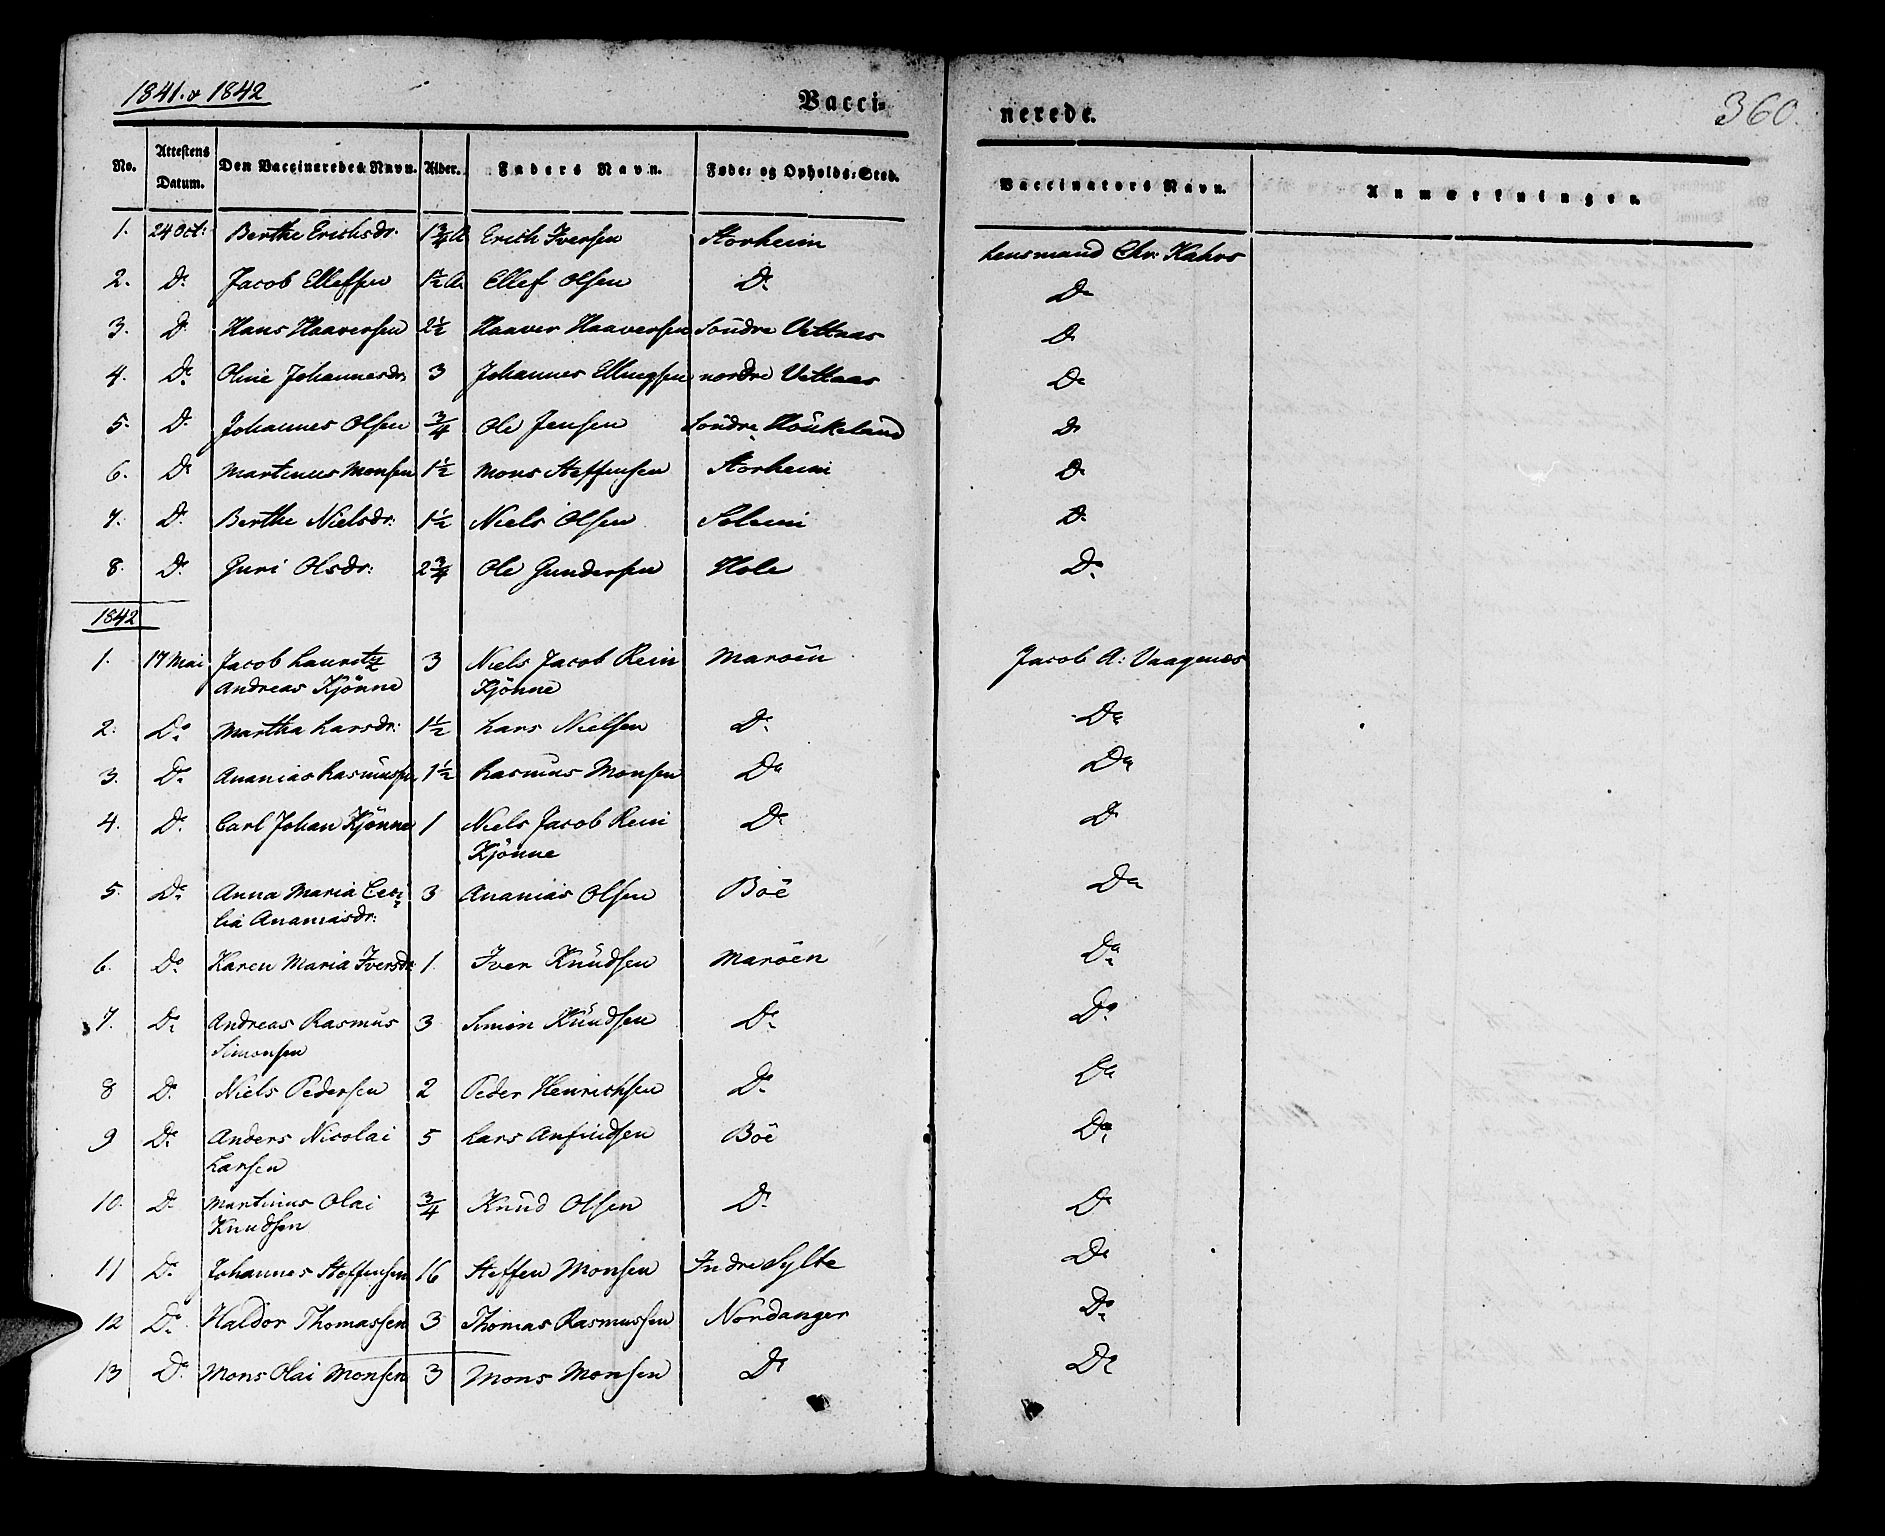 1841. & 1842 Vacci- nerede. 360.
No. Attestens Datum. Den Vaccineredes Navn. Alder. Faders Navn. Føde- og Opholds-Sted. Vaccinators Navn. Anmærkninger.
1. 24 Oct: Berthe Erichsdr: 1¾ A Erich Iversen Storheim Lensmand Chr: Kahrs
2. Do Jacob Ellefsen 1½ A. Ellef Olsen Do Do
3. Do Hans Haaversen 2½ Haaver Haaversen Söndre Vettaas Do
4. Do Oline Johannesdr: 3 Johannes Ellingsen nordre Vettaas Do
5. Do Johannes Olsen ¾ Ole Jensen Söndre Höukeland Do
6. Do Martinus Monsen 1½ Mons Steffensen Storheim Do
7. Do Berthe Nielsdr: 1½ Niels Olsen Solemi Do
8. Do Guri Olsdr: 2¾ Ole Gundersen Hole Do
1842
1. 17 Mai Jacob Lauritz 3 Niels Jacob Rein Maröen Jacob A: Vaagenæs
Andreas Kjönne Kjönne
2. Do Martha Larsdr: 1½ Lars Nielsen Do Do
3. Do Ananias Rasmussen 1½ Rasmus Monsen Do Do
4. Do Carl Johan Kjönne 1 Niels Jacob Rein Do Do
Kjönne
5. Do Anna Maria Ceci- 3 Ananias Olsen Böe Do
lia Ananiasdr:
6. Do Karen Maria Iversdr 1. Iver Knudsen Maröen Do
7. Do Andreas Rasmus 3 Simon Knudsen Do Do
Simonsen
8 Do Niels Pedersen 2 Peder Henrichsen Do Do
9 Do Anders Nicolai 5 Lars Anfindsen Böe Do
Larsen
10. Do Martinus Olai ¾ Knud Olsen Do Do
Knudsen
11 Do Johannes Steffensen 16 Steffen Monsen Indre Sylte Do
12 Do Haldor Thomassen 3 Thomas Rasmussen Nordanger Do
13 Do Mons Olai Monsen 3 Mons Monsen Do Do